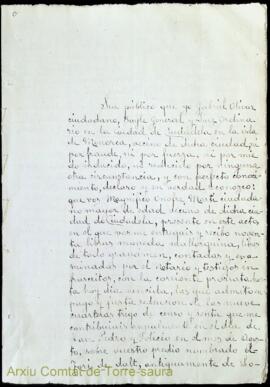 Sea público que yo Gabriel Olivar
ciudadano, Bayle General y Juez Ordina
rio en la Ciudad de Ciudadela en la isla
de Menorca, vecino de dicha ciudad, ni
por fraude, ni por fuerza, ni por mie
do inducido, ni seducido por ninguna
otra circunstancia, y con perfecto conoci
miento, declaro y en verdad reconozco:
que vos Magnífico Onofre Martí ciudada
no mayor de edad vecino de dicha ciu
dad de Ciudadela, presente en este acto
en el que por me entregais y recibo noven
ta libras moneda mallorquina, libres
de todo gravamen, contadas y exa
minadas por el Notario y testigos in
frascritos, con la corriente prorrata has
ta hoy dia vencida, las que admito en
pago y justa redencion de las nueve
cuarteras trigo de censo y renta que me
contribuiais anualmente en el dia de
San Pedro y Felicio en el mes de Agos
to, sobre vuestro predio nombrado el
de dalt, antiguamente de
Arxiu Comtat de Torre-saura